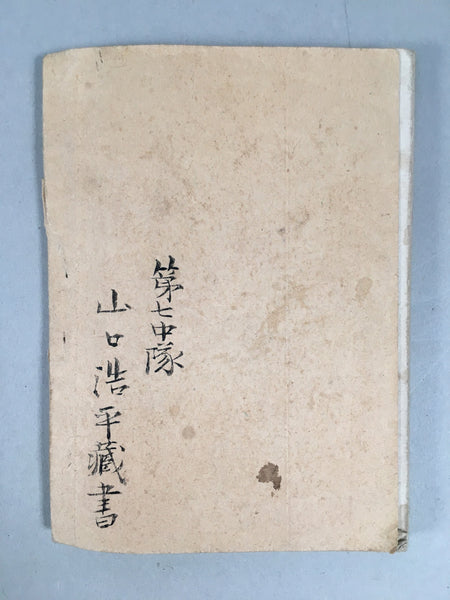 第七中隊
山口浩平藏書